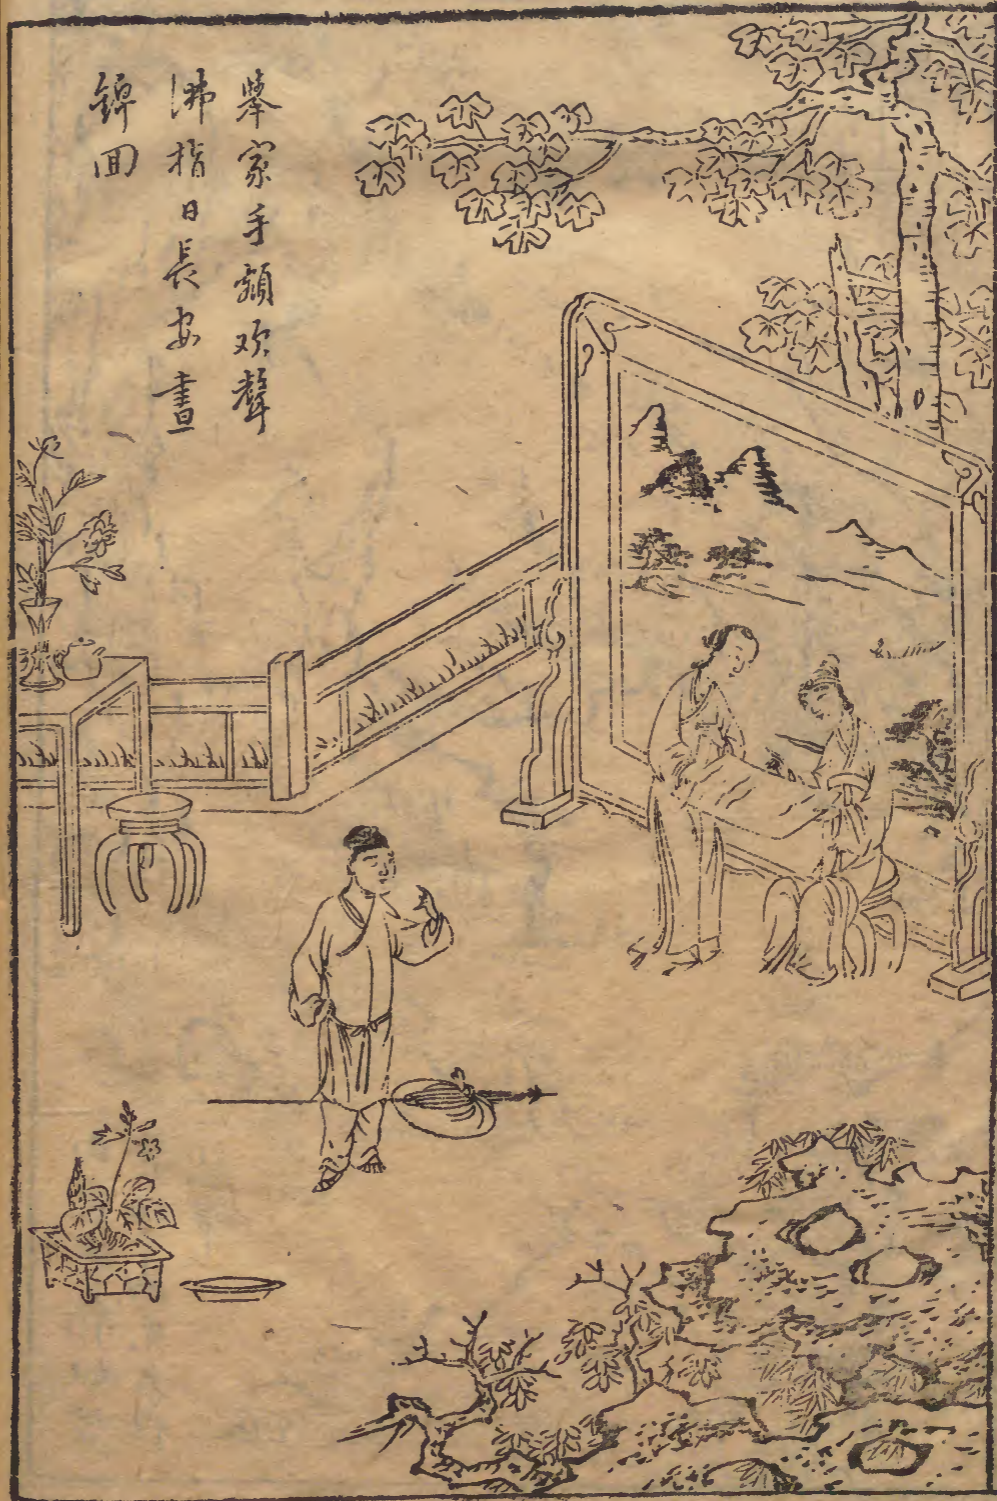 舉家手額欢聲
沸指日長安晝
錦回